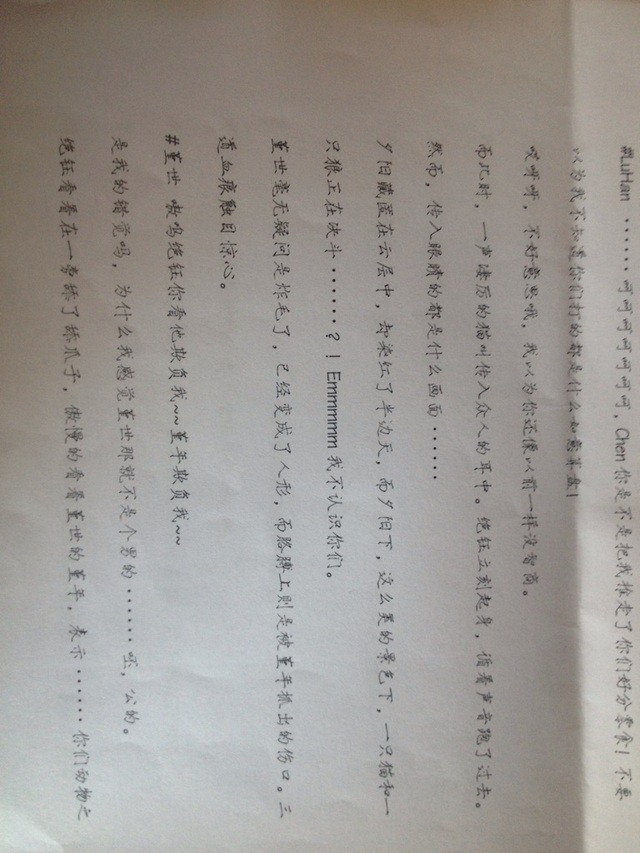 #LuHan ·······呵呵呵呵呵呵，Chen 你是不是把我推走了你们好分零食！不要
以为我不知道你们打的都是什么如意算盘！
哎呀呀，不好意思哦，我以为你还像以前一样没智商。
而此时，一声凄厉的猫叫传入众人的耳中。绝钰立刻起身，循着声音跑了过去。
然而，传入眼睛的都是什么画面·······
夕阳藏匿在云层中，却染红了半边天，而夕阳下，这么美的景色下，一只猫和一
只狼正在决斗······？！Emmmmm 我不认识你们。
堇世毫无疑问是炸毛了，已经变成了人形，而胳膊上则是被堇年抓出的伤口。三
道血痕触目惊心。
#堇世 嗷呜绝钰你看他欺负我~~堇年欺负我~~
是我的错觉吗，为什么我感觉堇世那就不是个男的·······呸，公的。
绝钰看着在一旁舔了舔爪子，傲慢的看着堇世的堇年，表示······你们动物之